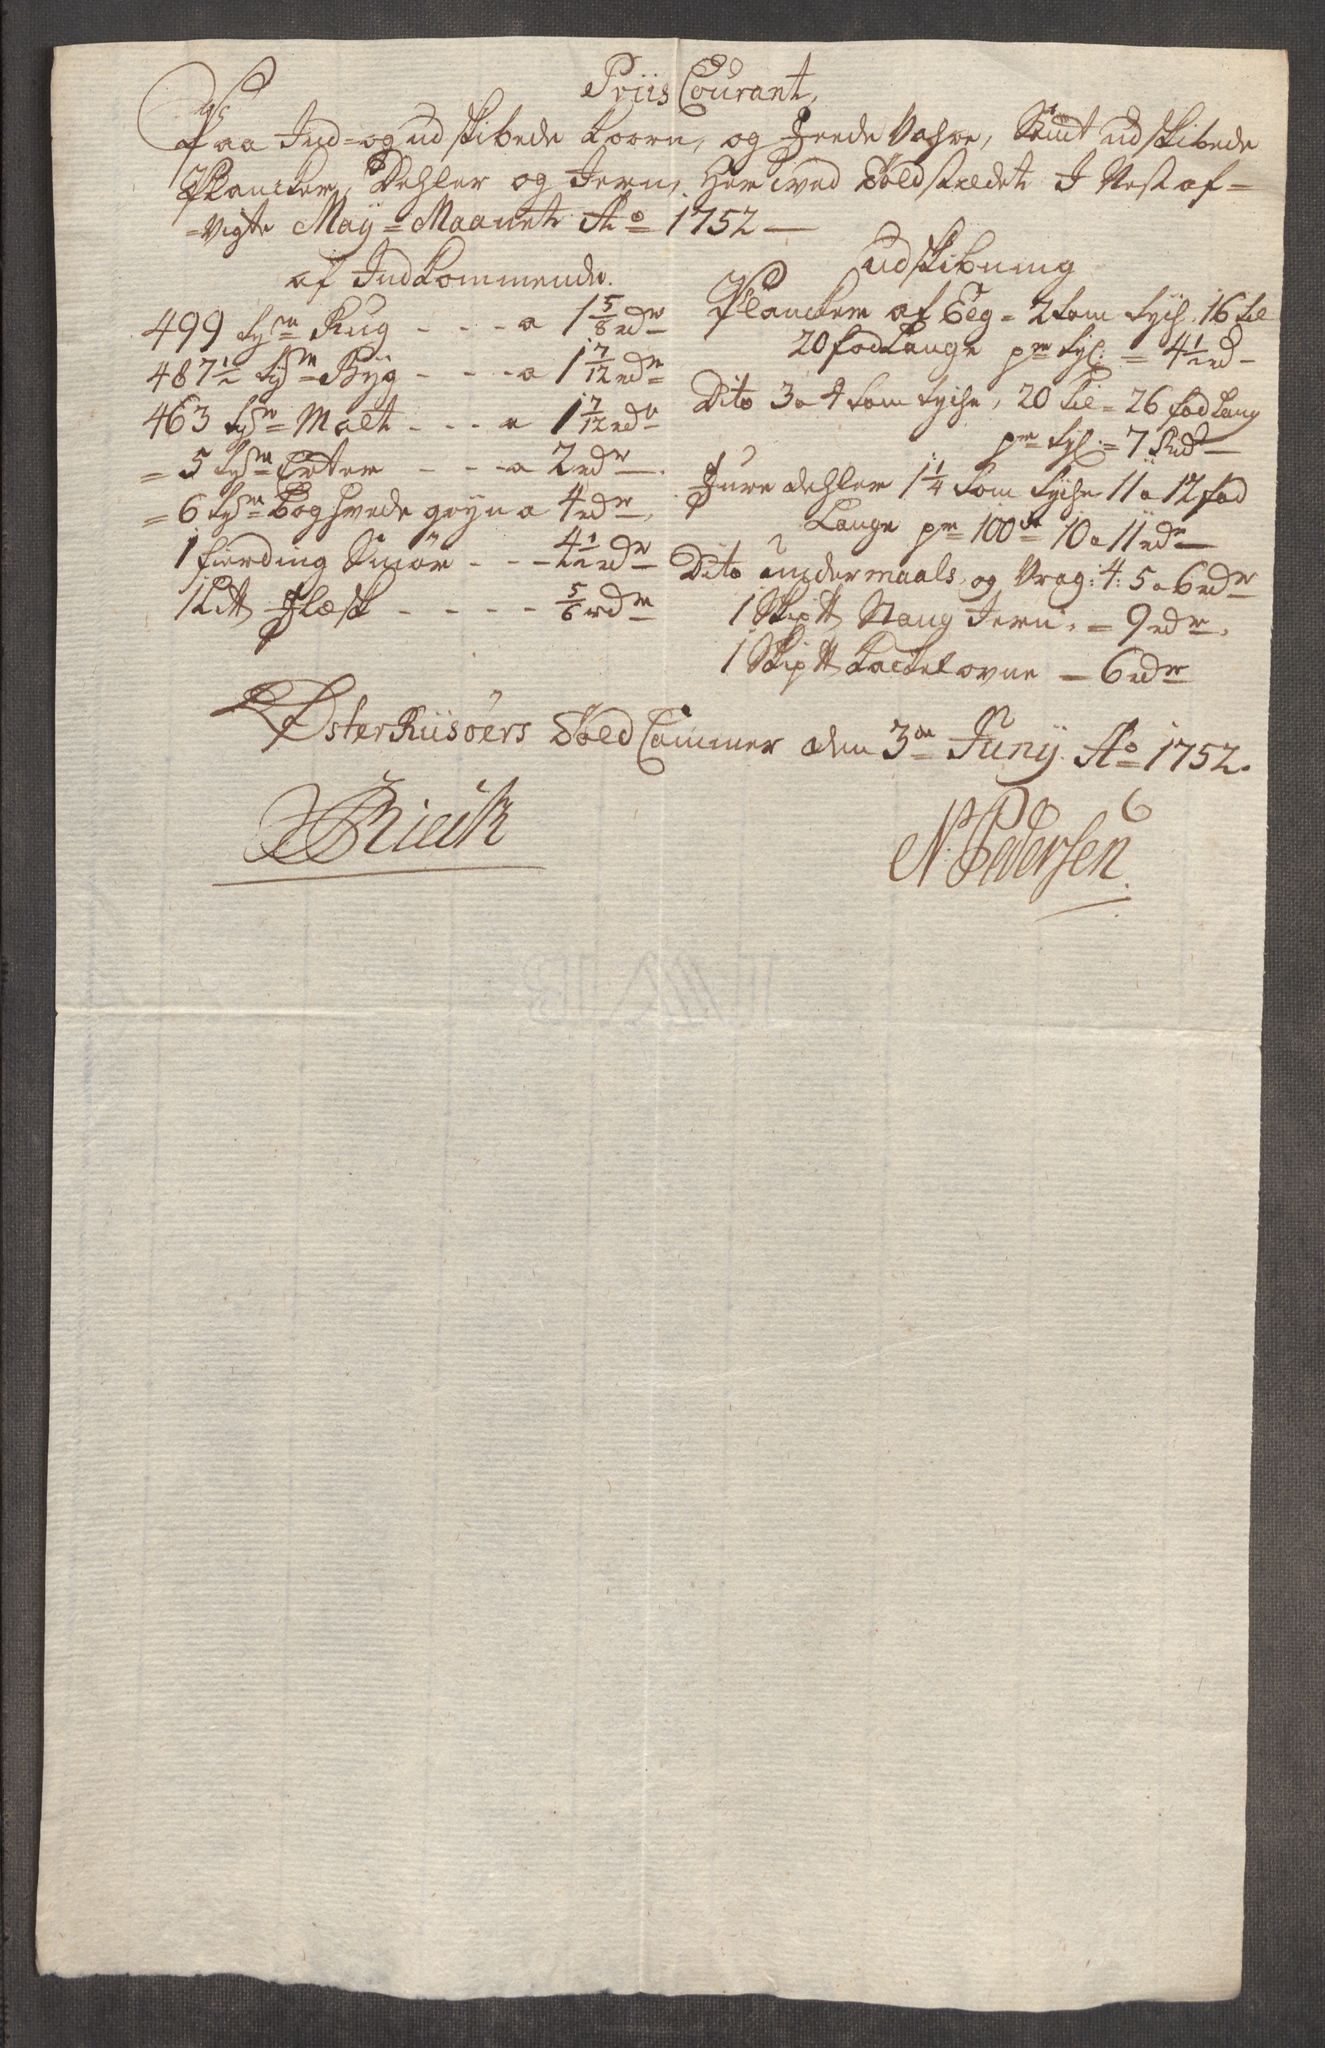 Priis Courant,
Paa Ind- og udskibede koorn, og Feede Vahre, Samt udskibede
Plancker, Dehler og Jern, Her ived Toldstædet I Nest af-
-vigte Maÿ-Maanet Ao 1752
af Indkommende.
499 tÿr Rug - - - a 1 5/8 rdr
487 1/2 tÿr Bÿg - - - a 1 7/12 rdr
463 tÿr Malt - - - a 1 7/12 rdr
= 5 tÿr Erter - - - a 2 rdr
= 6 tÿr Boghvede grÿn a 4 rdr
1 fierding Smør - - - 4 1/2 rdr
1 L℔ Flæsk - - - - 5/6 rdr
udskibning
Plancker af Eeg - 2 tom tÿch. 16 til
20 fod Lange pr tÿl. = 4 1/2 rd
Dito 3 a 4 tom tÿche, 20 til - 26 fod Lang
pr tÿl. = 7 Rd
Fure dehler 1 1/4 tom tÿche 11 a 12 fod
Lange pr 100de 10 a 11 rdr
Dito undermaals og Vrag: 4: 5 a 6 rdr
1 Skip ℔ Stang Jern. = 9 rdr.
1 Skip ℔ kackelovne - 6 rdr
ØsterRiisöers Told Cammer den 3de Junÿ Ao 1752.
N. Pedersen